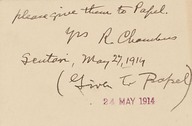 please give them to Papel.
Yrs R Chambers
May 27, 1914
(Given to Papel)
24 MAY 1914